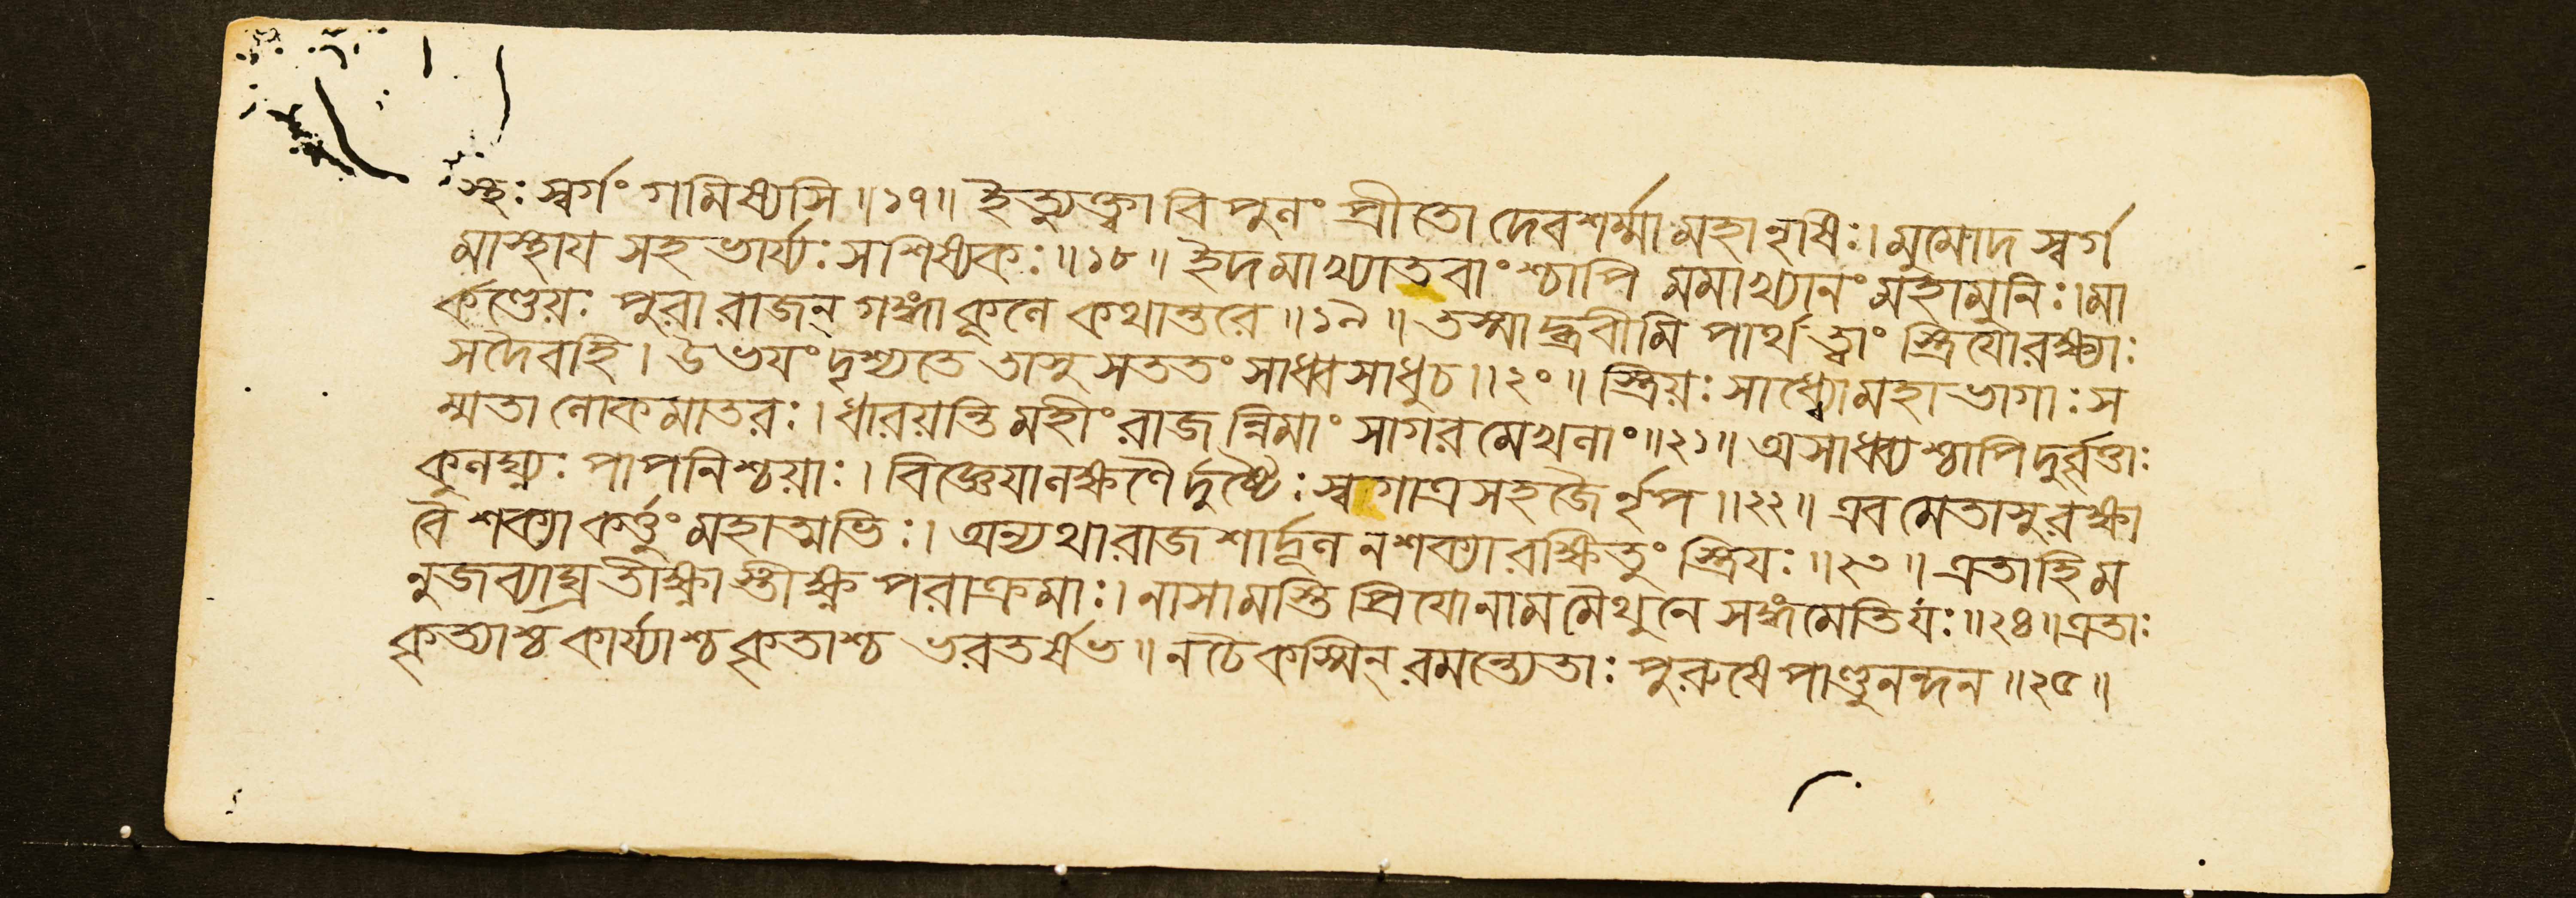 স্থঃ স্বর্গং গমিষ্যসি ॥১৭॥ ইত্যুক্ত্বা বিপুলং প্রীতো দেবশর্ম্মা মহানৃষিঃ। মুমোদ স্বর্গ
মাস্থায সহ ভার্য্যঃ সশিষ্যকঃ ॥১৮॥ ইদমাখ্যাতবাংশ্চাপি মমাখ্যানং মহামুনিঃ। মা
র্কণ্ডেয়ঃ পুরা রাজন্ গঙ্গাকূলে কথান্তরে ॥১৯॥ তস্মাদ্ব্রবীমি পার্থ ত্বাং স্ত্রিযোরক্ষ্যাঃ
সদৈবহি। উভযং দৃশ্যতে তাসু সততং সাধ্বসাধুচ ॥২০॥ স্ত্রিয়ঃ সাধ্ব্যোমহাভাগাঃ স
ম্মতা লোকমাতরঃ। ধারয়ন্তি মহীং রাজন্নিমাং সাগরমেখলাং ॥২১॥ অসাধ্ব্যশ্চাপি দুর্বৃত্তাঃ
কুলঘ্ন্যঃ পাপনিশ্চয়াঃ। বিজ্ঞেযালক্ষণৈর্দুষ্টৈঃ স্বগাত্রসহজৈর্নৃপ ॥২২॥ এবমেতাসুরক্ষা
বৈ শক্যা কর্ত্তুং মহাত্মভিঃ। অন্যথা রাজশার্দূল নশক্যারক্ষিতুং স্ত্রিযঃ ॥২৩॥ এতাহিম
নুজব্যাঘ্রতীক্ষ্ণাস্তীক্ষ্ণ পরাক্রমাঃ। নাসামস্তি প্রিযোনাম মৈথুনে সঙ্গমেতিযঃ ॥২৪॥ এতাঃ
কৃত্যাশ্চ কার্য্যাশ্চ কৃতাশ্চ ভরতর্ষভ॥ নচৈকস্মিন্ রমন্ত্যেতাঃ পুরুষে পাণ্ডুনন্দন ॥২৫॥